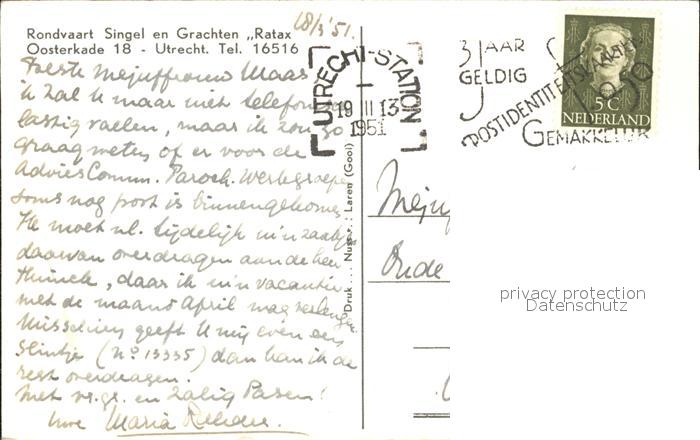 18/3 '51.
Rondvaart Singel en Grachten „Ratax
Oosterkade 18 - Utrecht. Tel. 16516
Beste Mejuffrouw Maas
ik zal U maar niet telefonisch
lastig vallen, maar ik zou zo
graag weten of er voor de
Advies Comm. Paroch. Werkgroepen
soms nog post is binnengekomen
Ik moet nl. tijdelijk m'n zaakjes
daarvan overdragen aan de heer
daar ik m'n vacantie
met de maand April mag verlengen
Misschien geeft U mij even een
seintje (No 13335) dan kan ik de
rest overdragen.
Met vr. gr. en Zalig Pasen!
Uwe Maria
UTRECHT-STATION
19 III 13
1951
3 JAAR
GELDIG
POSTIDENTITEITSKAART
GEMAKKELIJK
5 C
NEDERLAND
Druk Nuss Laren (Gooi)
Mej
Oude
privacy protection
Datenschutz